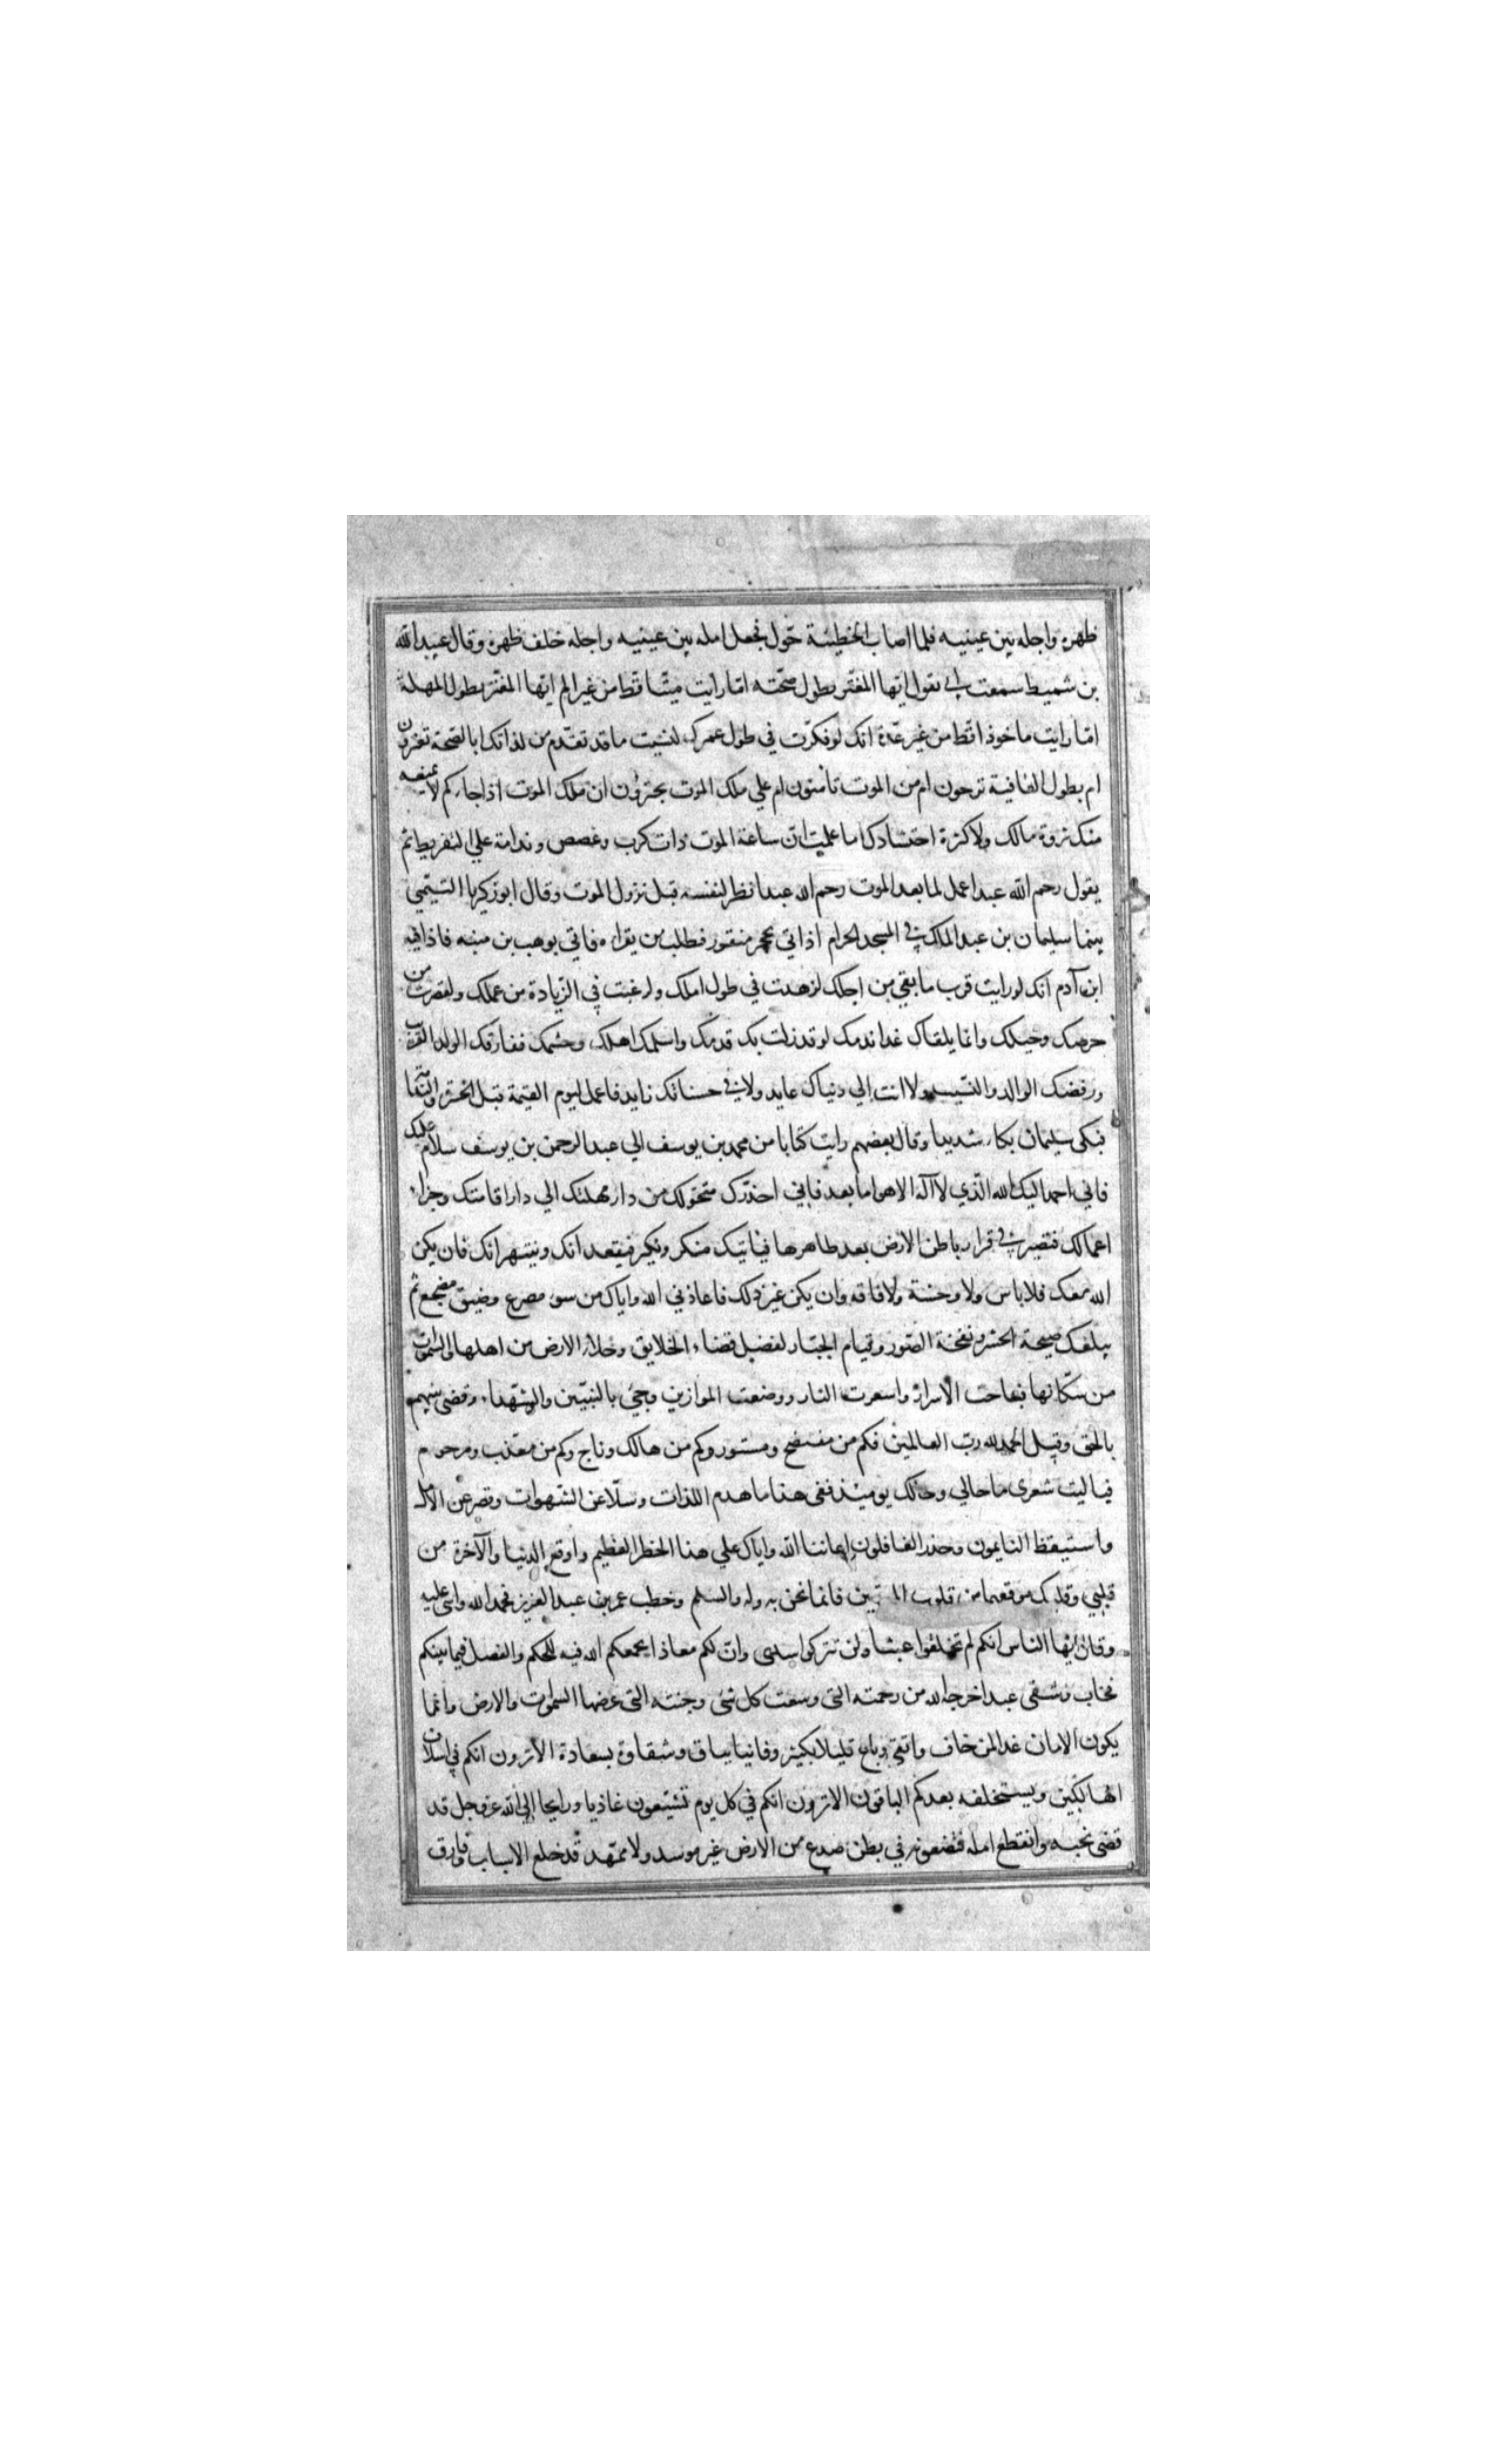 ظهره واجله بين عينيه فلما اصاب الخطيئة حوّل فجعل امله بين عينيه واجله خلف ظهره وقال عبيد الله
بن شميط سمعت ابي يقول ايّها المغتر بطول صحّته امّا رايت ميّتا قطّ من غير الم ايّها المغتر بطول المهلة
امّا رايت ماخوذا قطّ من غير عدّة انك لو فكّرت في طول عمرك لنسيت ما قد تقدّم من لذاتك ابالصّحة تغترون
ام بطول العافية ترحون ام من الموت تأمنون ام علي ملك الموت تجترؤن ان ملك الموت اذا جاءكم لا يمنعه
منك ثروة مالك ولا كثرة احتشادك اما علمت انّ ساعة الموت ذات كرب وغصص وندامة علي التفريط ثم
يقول رحم الله عبدا عمل لما بعد الموت رحم الله عبدا نظر لنفسه قبل نزول الموت وقال ابو زكريا التيمّي
بينما سليمان بن عبد الملك في المسجد الحرام اذ اتي بحجر منقور فطلب من يقراه فاتي بوهب بن منبه فاذا فيه
ابن آدم انك لو رايت قرب ما بقي من اجلك لزهدت في طول املك ولرغبت في الزّيادة من عملك ولقصرت من
حرصك وحيلك وانما يلقاك غدا ندمك لو قد زلت بك قدمك واسلمك اهلك وحشمك ففارقك الولد القريب
ورفضك الوالد والنّسيب ولا انت الي دنياك عايد ولا في حسناتك زايد فاعمل ليوم القيمة قبل الحسرة والندامة
فبكى سليمان بكاء شديدا وقال بعضهم رايت كتابا من محمد بن يوسف الي عبد الرحمن بن يوسف سلام عليك
فاني احمد اليك الله الّذي لا اله الا هو اما بعد فاني احذّرك متحوّلك من دار مهلتك الي دار اقامتك وجزاء
اعمالك فتصير في قرار باطن الارض بعد ظاهرها فياتيك منكر ونكير فيقعدانك وينتهرانك فان يكن
الله معك فلا باس ولا وحشة ولا فاقة وان يكن غير ذلك فاعاذني الله واياك من سوء مصرع وضيق مضجع ثم
يبلغك صيحة الحشر ونفخة الصّور وقيام الجبّار لفصل قضاء الخلايق وخلاء الارض من اهلها والسّموات
من سكّانها فباحت الاسرار واسعرت النار ووضعت الموازين وجئ بالنبيّين والشّهداء وقضى بينهم
بالحق وقيل الحمد لله ربّ العالمين فكم من مفتضح ومستور وكم من هالك وناج وكم من معذب ومرحوم
فيا ليت شعرى ما حالي وحالك يوميذ ففى هذا ما هدم اللذات وسلّا عن الشّهوات وقصر عن الامل
واستيقظ النايمون وحذر الغافلون اعاننا الله واياك علي هذا الخطر العظيم واوقع الدنيا والآخرة من
قلبي وقلبك موقعهما من قلوب المتقين فانما نحن به وله والسلم وخطب عمر بن عبد العزيز فحمد الله واثنى عليه
وقال ايّها الناس انكم لم تخلقوا عبثا ولن تتركوا سدى وانّ لكم معادا يجمعكم الله فيه للحكم والفصل فيما بينكم
فخاب وشقى عبد اخرجه الله من رحمته التى وسعت كل شئ وجنته التى عرضها السموات والارض وانّما
يكون الامان غدا لمن خاف واتقى وباع قليلا بكثير وفانيا بباق وشقاوة بسعادة الا ترون انكم في اسلاب
الهالكين ويستخلفه بعدكم الباقون الا ترون انكم في كل يوم تشيّعون غاديا ورايحا الى الله عز وجل قد
قضى نحبه وانقطع امله فتضعونه في بطن صدع من الارض غير موسد ولا ممهّد قد خلع الاسباب وفارق